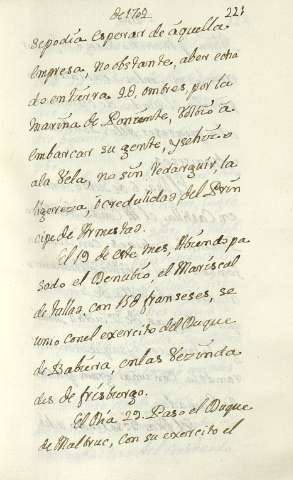 de 1702 221
se podia esperar de áquella
empresa, no obstante, aber echa
do en tierra 28. ombres, por la
marina de Poniente, bolbió á
embarcar su gente, y se hizo
ala Vela, no sin redarguir, la
ligereza, ò credulidad del Prin
cipe de Armestad.
El 19 de este mes, abiendo pa
sado el Danubio, el Mariscal
de Tallas, con 158 franseses, se
unio con el exercito del Duque
de Babiera, en las vezinda
des de frisburgo.
El Dia 29. Paso el Duque
de Malbruc, con su exercito el